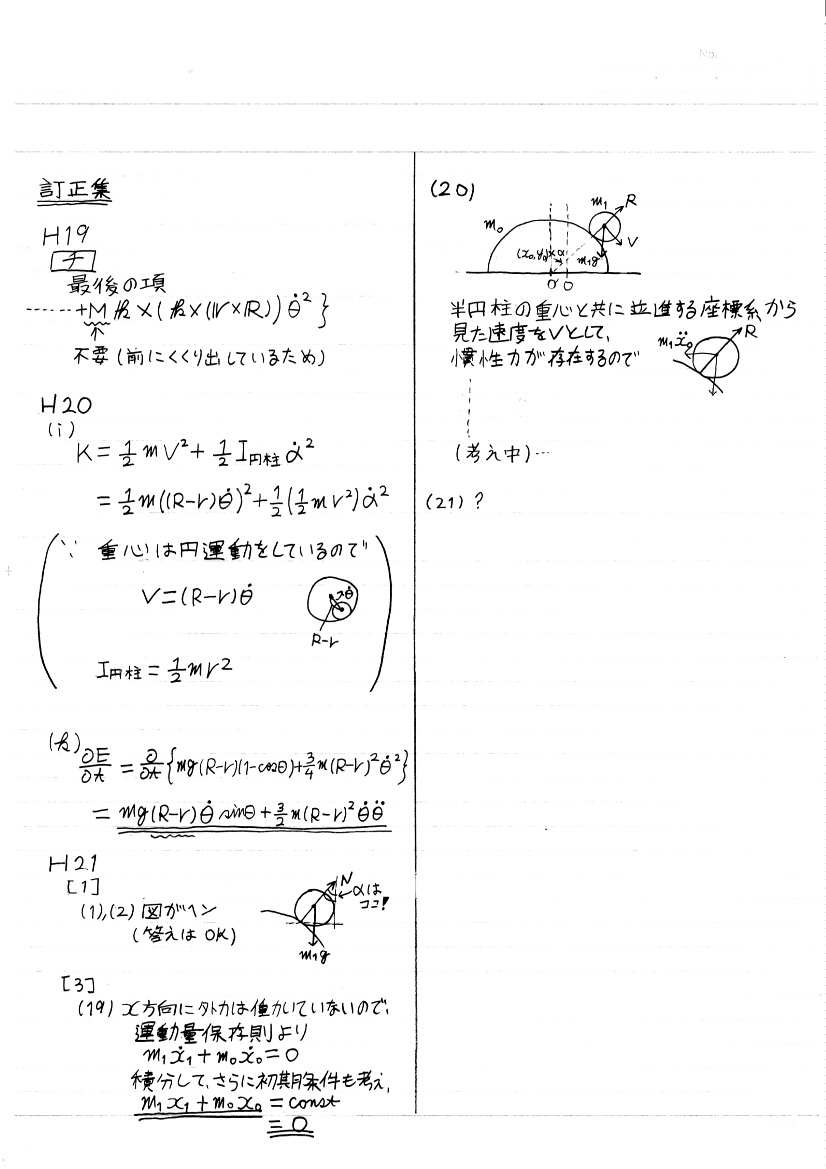 No.
訂正集
H19
チ
最後の項
……+M k×(k×(r×R))θ̇² }
不要(前にくくり出しているため)
H20
(i)
K = 1/2 m V² + 1/2 I円柱 α̇²
= 1/2 m((R-r)θ̇)² + 1/2(1/2 m r²)α̇²
∵ 重心は円運動をしているので
V=(R-r)θ̇
θ̇
R-r
I円柱 = 1/2 m r²
(k)
∂E/∂t = ∂/∂t {mg(R-r)(1-cosθ)+3/4 m(R-r)²θ̇²}
= mg(R-r)θ̇ sinθ + 3/2 m(R-r)²θ̇θ̈
H21
[1]
(1),(2) 図がヘン
(答えは OK)
N
αは
ココ!
m₁g
[3]
(19) x方向に外力は働いていないので、
運動量保存則より
m₁ẋ₁ + m₀ẋ₀ = 0
積分して、さらに初期条件も考え、
m₁x₁ + m₀x₀ = const
= 0
(20)
m₀
m₁
R
V
(x₀,y₀)
α
m₁g
O' O
半円柱の重心と共に並進する座標系から
見た速度をVとして、
慣性力が存在するので
m₁ẍ₀
R
(考え中)…
(21) ?